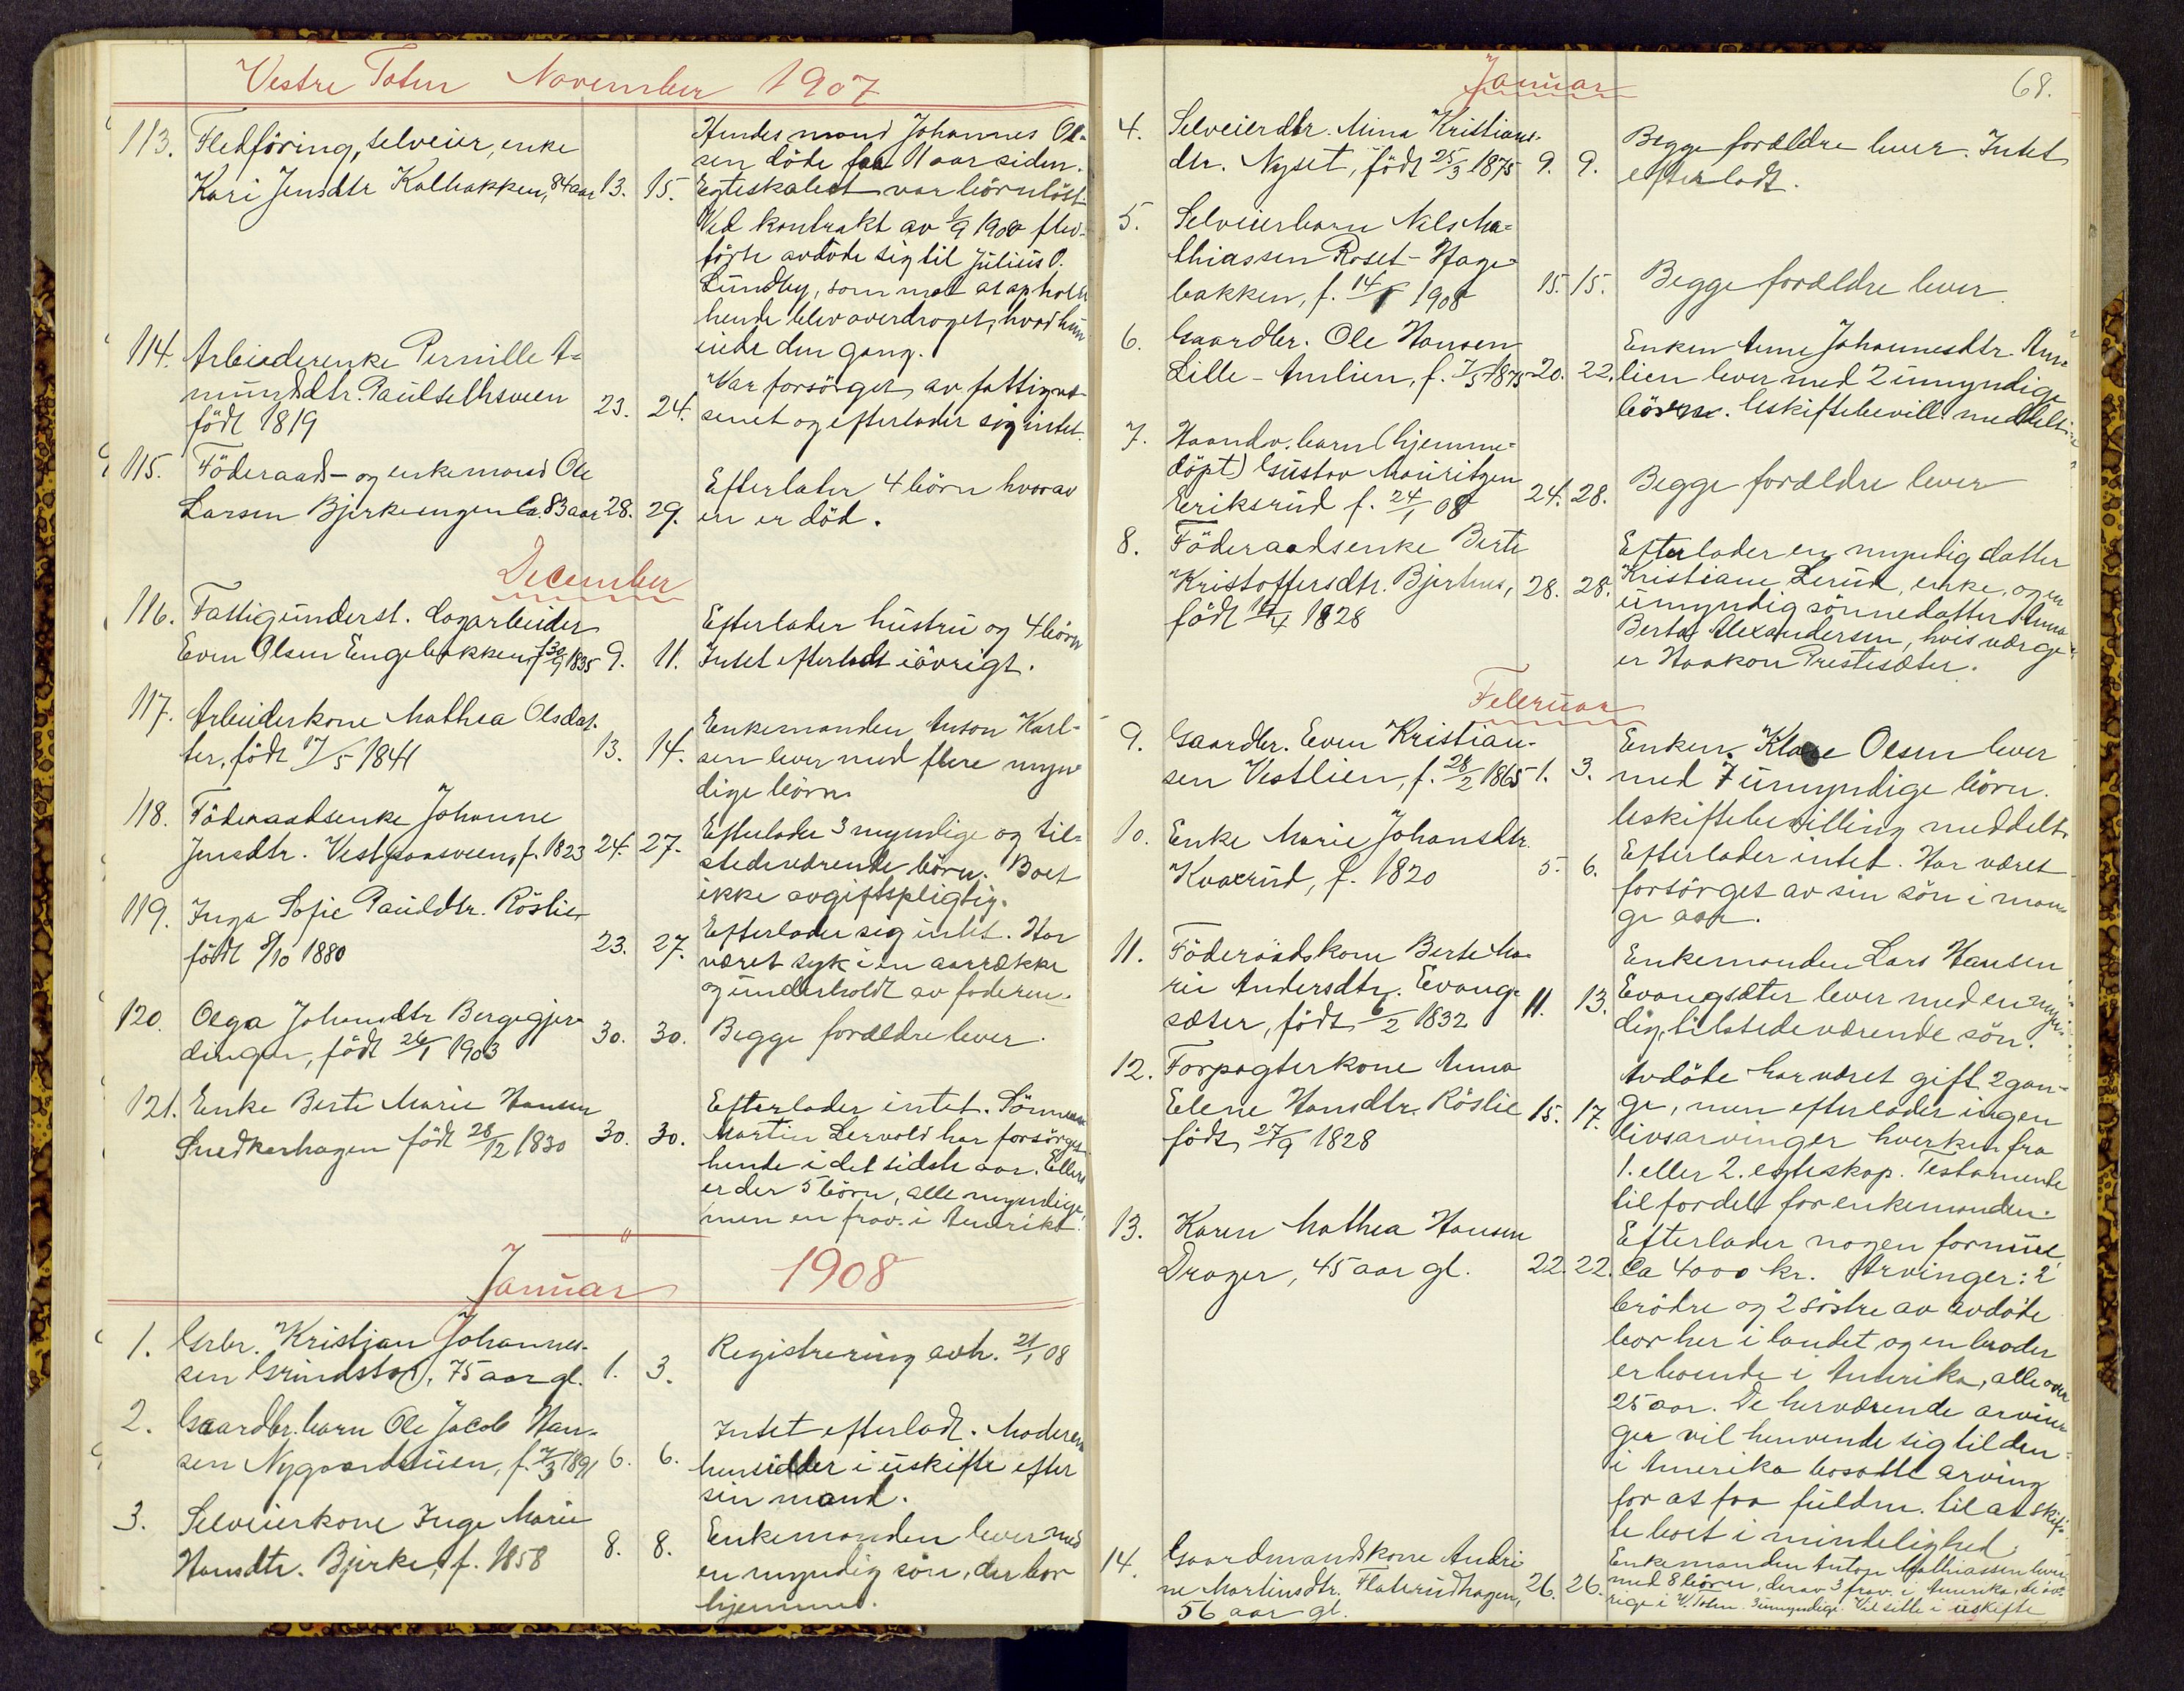 Vestre Toten November 1907
113. Fledföring, selveier, enke
Kari Jensdtr Kalbakken, 84 aar 13. 15.
Hendes mand Johannes Ol-
sen döde for 11 aar siden.
Egteskabet var börnlöst.
Ved kontrakt av 1/9 1900 fled-
förte avdöde sig til Julius O.
Lundby, som mot at opholde
hende blev overdraget, hvad hun
eiede den gang.
114. Arbeiderenke Pernille A-
mundsdtr. Paulsethsveen
født 1819 23. 24.
Var forsörget av fattigvæ-
senet og efterlader sig intet.
115. Föderaads- og enkemand Ole
Larsen Bjerkeengen ca. 83 aar 28. 29.
Efterlater 4 börn hvorav
en er död.
December
116. Fattigunderst. dagarbeider
Even Olsen Engebakken f. 30/9 1835 9. 11.
Efterlader hustru og 4 börn
Intet efterladt iövrigt.
117. Arbeiderkone Mathea Olsdat-
ter, födt 17/5 1841 13. 14.
Enkemanden Anton Karl-
sen lever med flere myn-
dige börn
118. Föderaadsenke Johanne
Jensdtr. Vestraasveen, f. 1823 24. 27.
Efterlader 3 myndige og til-
stedeværende börn. Boet
ikke avgiftspligtig.
119. Inga Sofie Paulsdtr. Röslie
född 8/10 1880 23. 27.
Efterlader sig intet. Har
været syk i en aarrække
og underholdt av faderen.
120. Olga Johansdtr Bergsgjer-
dingen, född 26/1 1903 30. 30.
Begge forældre lever.
121. Enke Berte Marie Hansen
Snedkerhagen född 28/12 1830 30. 30.
Efterlader intet. Sönnen
Martin Lervold har forsörget
hende i det sidste aar. Ellers
er der 5 börn, alle myndige,
men en frav. i Amerika.
Januar 1908
1. Grbr. Kristian Johannes-
sen Grindstad, 75 aar gl. 1. 3.
Registrering avh. 21/1 08
2. Gaardbr. barn Ole Jacob Han-
sen Nygaardstuen, f. 7/3 1891 6. 6.
Intet efterladt. Moderen
hensidder i uskifte efter
sin mand.
3. Selveierkone Inge Marie
Hansdtr. Bjerke, f. 1858 8. 8.
Enkemanden lever med
en myndig sön, der bor
hjemme.
68.
Januar
4. Selveierdtr. Mina Kristians-
dtr. Nyset, född 25/3 1875 9. 9.
Begge forældre lever. Intet
efterladt.
5. Selveierbarn Nils Ma-
thiassen Roset-Hage-
bakken, f. 14/1 1908 15. 15.
Begge forældre lever.
6. Gaardbr. Ole Hansen
Lille-Amlien, f. 7/5 1875 20. 22.
Enken Anne Johannesdtr. Am-
lien lever med 2 umyndige
börn. Uskiftebevill. meddelt.
7. Haandv. barn (hjemme-
döpt) Gustav Mauritzen
Eriksrud f. 24/1 08 24. 28.
Begge forældre lever
8. Föderaadsenke Berte
Kristoffersdtr. Bjerhus, 28. 28.
född 14/4 1828
Efterlader en myndig datter
Kristiane Lerud, enke, og en
umyndig sönnedatter Anna
Berta Alexandersen, hvis værge
er Haakon Prestesæter.
Februar
9. Gaardbr. Even Kristian-
sen Vestlien, f. 28/2 1865 1. 3.
Enken Olsen lever
med 7 umyndige börn.
Uskiftebevilling meddelt.
10. Enke Marie Johansdtr.
Kværud, f. 1820 5. 6.
Efterlader intet. Har været
forsörget av sin sön i man-
ge aar.
11. Föderaadskone Berte Ma-
rie Andersdtr. Evang-
sæter, född 6/2 1832 11. 13.
Enkemanden Lars Hansen
Evangsæter lever med en myn-
dig, tilstedeværende sön.
12. Forpagterkone Anna
Elene Hansdtr. Röslie 15. 17.
född 27/9 1828
Avdöde har været gift 2 gan-
ge, men efterlader ingen
livsarvinger hverken fra
1. eller 2. egteskap. Testamente
til fordel for enkemanden.
13. Karen Mathea Hansen
Drager, 45 aar gl. 22. 22.
Efterlader nogen formue
ca 4000 kr. Arvinger: 2
brödre og 2 söstre av avdöde
bor her i landet og en broder
er boende i Amerika, alle over
25 aar. De herværende arvin-
ger vil henvende sig til den
i Amerika bosatte arving
for at faa fuldm. til at skif-
te boet i mindelighed.
14. Gaardmandskone Andri-
ne Martinsdtr. Flaterudhagen, 26. 26.
56 aar gl.
Enkemanden Anton Mathiassen lever
med 8 börn, derav 3 frav. i Amerika, de öv-
rige i V. Toten. 3 umyndige. Vil sitte i uskifte